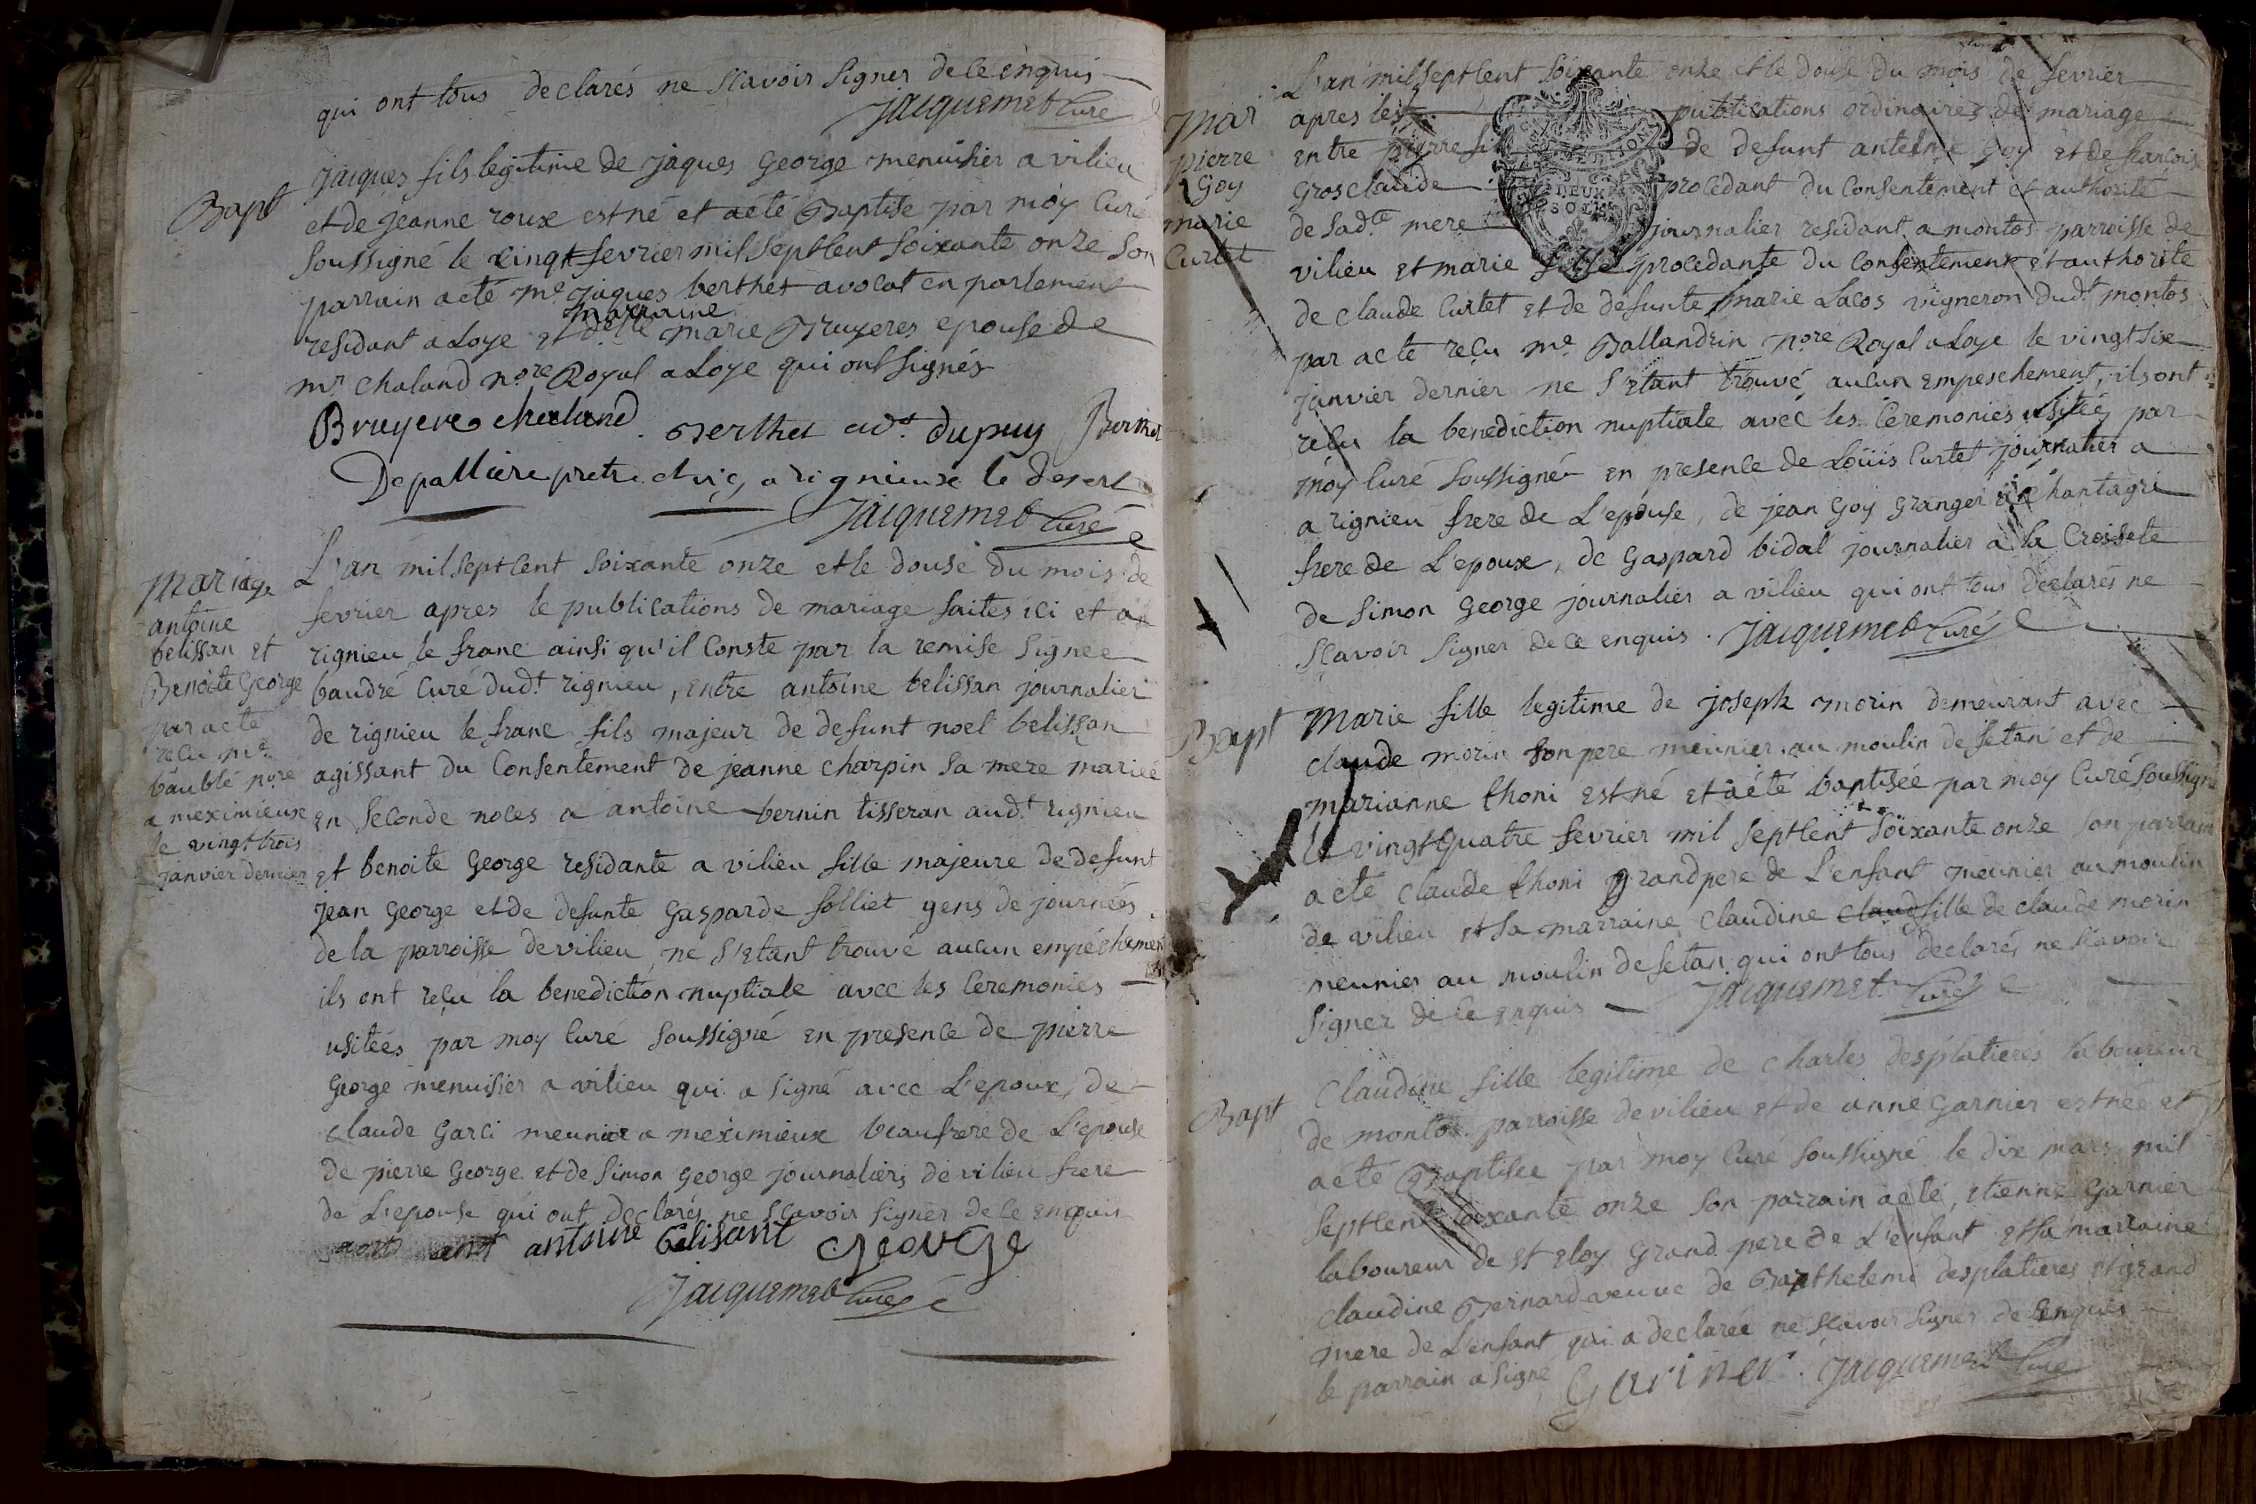 qui ont tous declarés ne scavoir signer de ce enquis
Jacquemet curé
Bapt
jacques fils legitime de jaques george menuisier a vilieu
et de jeanne roux est né et a eté Baptise par moy curé
soussigné le cinq fevrier mil sept cent soixante onze son
parrain a eté me jaques berthet avocat en parlement
marraine
residant a Loye et d.elle marie Bruyeres epouse de
mr chaland nore Royal a Loye qui ont signés
Bruyere chaland berthet avt dupuy
Depalliere pretre a rignieux le desert
Jacquemet curé
mariage
antoine
belissan et
Benoite George
par acte
recu me
baublé nore
a meximieux
le vingt trois
janvier dernier
L'an mil sept cent soixante onze et le douse du mois de
fevrier apres le publications de mariage faites ici et a
rignieu le franc ainsi qu'il conste par la remise signee
baudré curé dudt rignieu, entre antoine belissan journalier
de rignieu le franc fils majeur de defunt noel belissan
agissant du consentement de jeanne charpin sa mere mariée
en seconde noces a antoine bernin tisseran audt rignieu
et benoite George residante a vilieu fille majeure de defunt
jean George et de defunte Gasparde folliet gens de journées
de la parroisse de vilieu, ne s'etant trouvé aucun empéchement
ils ont reçu la benediction nuptiale avec les ceremonies
usitées par moy curé soussigné en presence de pierre
George menuisier a vilieu qui a signé avec L'epoux, de
claude Garci meunier a meximieux beaufrere de L'epouse
de pierre George et de simon George journaliers de vilieu frere
de L'epouse qui ont declarés ne scavoir signer de ce enquis
ant antoine belisant George
Jacquemet curé
mar
pierre
Goy
marie
Curtet
L'an mil sept cent soixante onze et le douse du mois de fevrier
apres les publications ordinaires de mariage
entre pierre fils de defunt antelme Goy et de francoise
Grosclaude procedant du consentement et authorité
DEUX
SOLS
de sadte mere journalier residant a montos parroisse de
vilieu et marie fille procedante du consentement et authorite
de claude Curtet et de defunte marie Lacos vigneron dudt montos
par acte reçu me Ballandrin nore Royal a Loye le vingt six
janvier dernier ne s'etant trouvé aucun empeschement, ils ont
reçu la benediction nuptiale avec les ceremonies usitées par
moy curé soussigné en presence de Loüis Curtet journalier a
a rignieu frere de L'epouse, de jean Goy Granger a chantagri
frere de L'epoux, de Gaspard bidal journalier a la Crossete
de simon George journalier a vilieu qui ont tous declarés ne
scavoir signer de ce enquis. Jacquemet curé
Bapt
Marie fille legitime de joseph morin demeurant avec
claude morin son pere meunier au moulin de setan et de
marianne thoni est né et a été baptisée par moy curé soussigné
le vingt quatre fevrier mil sept cent soixante onze son parrain
a eté claude thoni grand pere de L'enfant meunier au moulin
de vilieu et sa marraine claudine claud fille de claude morin
meunier au moulin de setan qui ont tous declarés ne scavoir
signer de ce enquis Jacquemet curé
Bapt
Claudine fille legitime de charles desplatieres laboureur
de montos parroisse de vilieu et de anne Garnier est née et
a eté Baptisee par moy cure soussigné le dix mars mil
sept cent soixante onze son parrain a eté, etienne Garnier
laboureur de st eloy Grand pere de L'enfant et sa marraine
claudine Bernard veuve de Barthelemi desplatieres et grand
mere de L'enfant qui a declaréé ne scavoir signer de enquis
le parrain a signé Garinier. Jacquemet curé